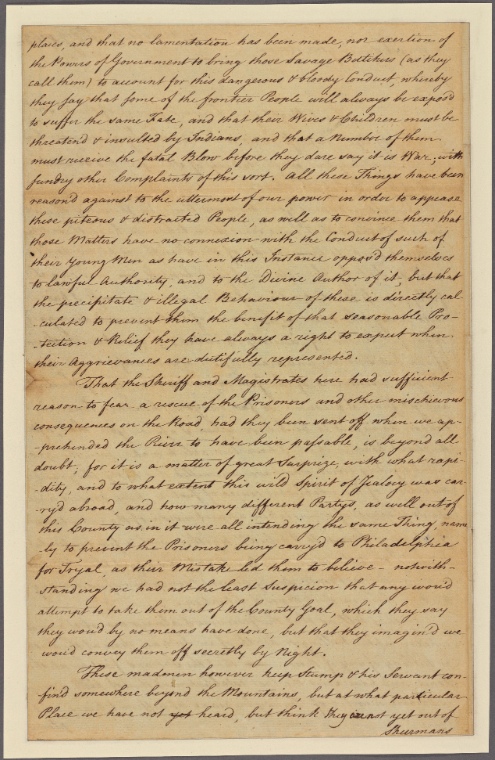 places, and that no lamentation has been made, nor exertion of
the Powers of Government to bring those Savage Butchers (as they
call them) to account for this dangerous & bloody Conduct, whereby
they say that some of the frontier People will always be expos'd
to suffer the same Fate, and that their Wives & Children must be
threatend & insulted by Indians, and that a Number of them
must receive the fatal Blow before they dare say it is War; with
sundry other Complaints of this sort. All these Things have been
reason'd against to the uttermost of our power in order to appease
these piteous & distracted People, as well as to convince them that
those Matters have no connexion with the Conduct of such of
their Young Men as have in this Instance oppos'd themselves
to lawful Authority, and to the Divine Author of it, but that
the precipitate & illegal Behaviour of these is directly cal
-culated to prevent them the benefit of that seasonable Pro-
-tection & Relief they have always a right to expect when
their Aggrievances are dutifully represented.
That the Sheriff and Magistrates here had sufficient
reason to fear a rescue of the Prisoners and other mischievous
consequences on the Road, had they been sent off when we ap-
-prehended the River to have been passable, is beyond all
doubt; for it is a matter of great Surprize, with what rapi-
-dity, and to what extent this wild Spirit of Jealousy was car-
-ry'd abroad, and how many different Partys, as well out of
this County as in it were all intending the same Thing, name
-ly to prevent the Prisoners being carry'd to Philadelphia
for Tryal, as their Mistake led them to believe - notwith-
-standing we had not the least Suspicion that any wou'd
attempt to take them out of the County Goal, which they say
they wou'd by no means have done, but that they imagin'd we
wou'd convey them off secretly by Night.
These madmen however keep Stump & his Servant con-
-fin'd somewhere beyond the Mountains, but at what particular
Place we have not yet heard, but think they are not yet out of
Shearmans